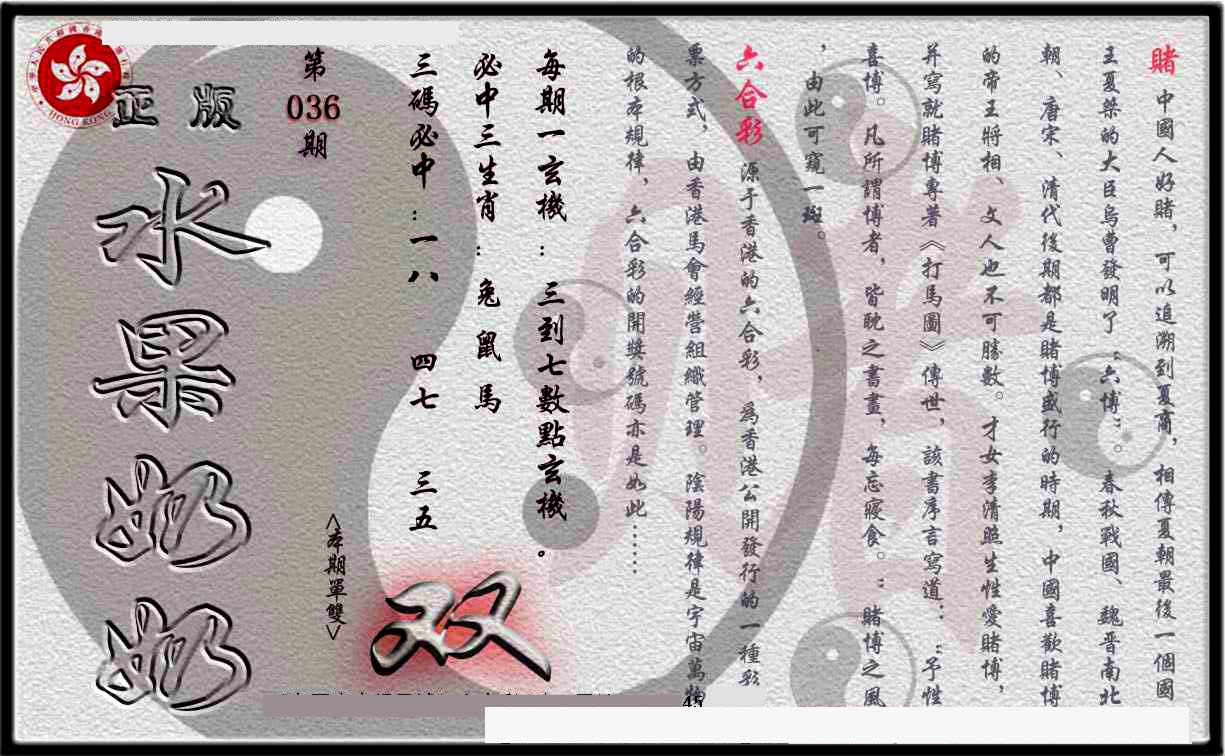 賭 中國人好賭，可以追溯到夏商，相傳夏朝最後一個國
王夏桀的大臣烏曹發明了“六博”。春秋戰國、魏晉南北
朝、唐宋、清代後期都是賭博盛行的時期，中國喜歡賭博
的帝王將相、文人也不可勝數。才女李清照生性愛賭博，
并寫就賭博專著《打馬圖》傳世，該書序言寫道：“予性
喜博。凡所謂博者，皆耽之書畫，每忘寢食。”賭博之風
，由此可窺一斑。
六合彩 源于香港的六合彩，為香港公開發行的一種彩
票方式，由香港馬會經營組織管理。陰陽規律是宇宙萬物
的根本規律，六合彩的開獎號碼亦是如此……
每期一玄機：三到七數點玄機。
必中三生肖：兔 鼠 馬
三碼必中：一八 四七 三五
<本期單雙>
双
第
036
期
正版
水果奶奶
HONG KONG
45